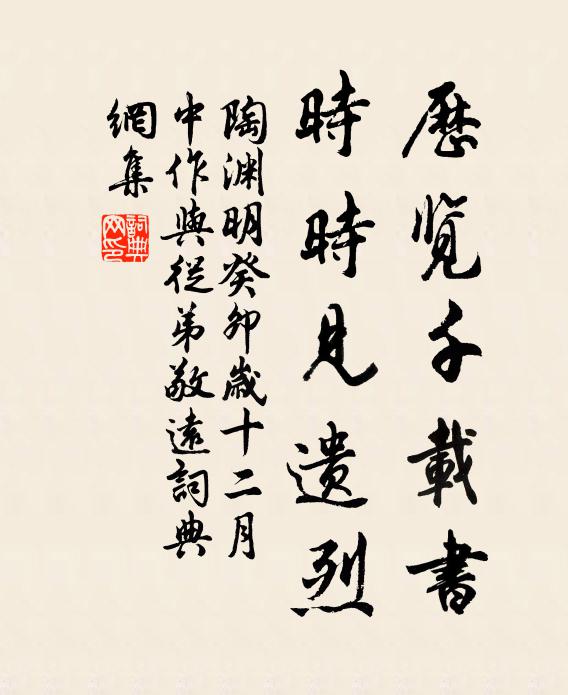 歷覽千載書
時時見遺烈
陶渊明癸卯歲十二月
中作與從弟敬遠詞典
網集
詞典網印